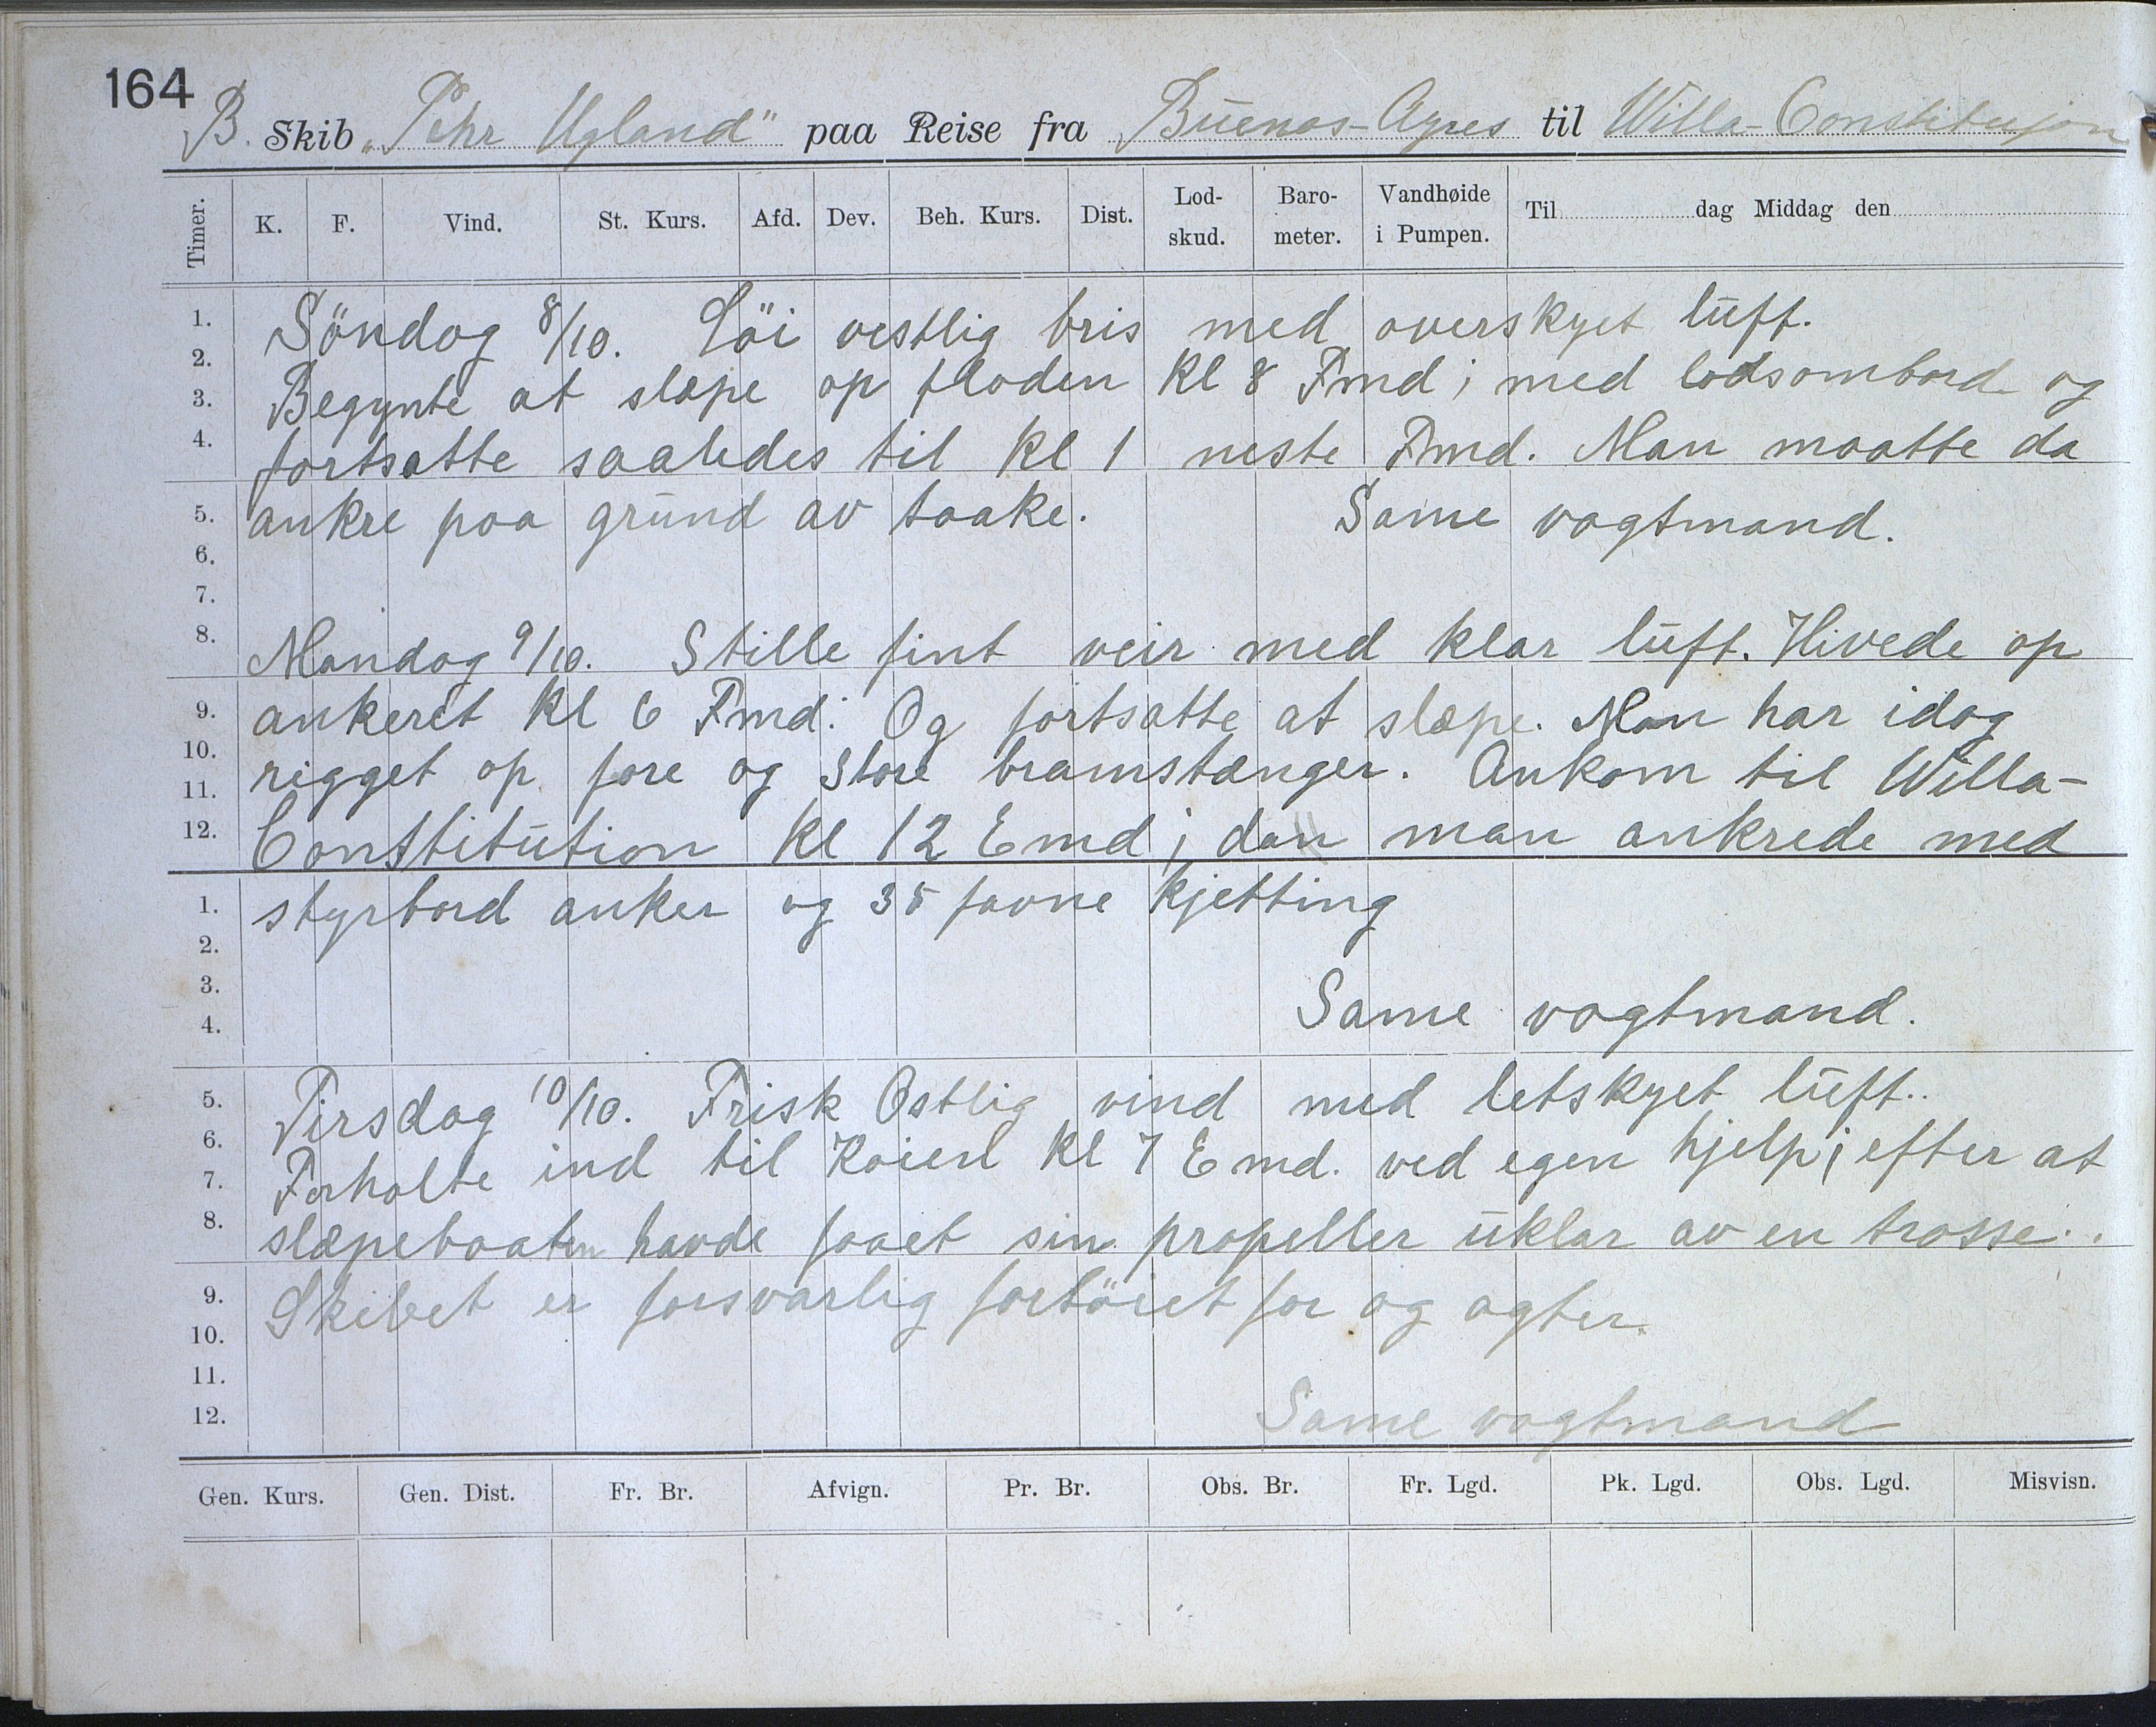 164
B. Skib „Pehr Ugland" paa Reise fra Buenos-Ayres til Willa-Constitusjon
Timer. K. F. Vind. St. Kurs. Afd. Dev. Beh. Kurs. Dist. Lod-skud. Baro-meter. Vandhøide i Pumpen. Til dag Middag den
1. Söndag 8/10. Löi vestlig bris med overskyet luft.
2.
3. Begynte at slæpe op floden Kl 8 Fmd; med lods ombord og
4. fortsatte saaledes til Kl 1 neste Fmd. Man maatte da
5. ankre paa grund av taake. Same vagtmand.
6.
7.
8. Mandag 9/10. Stille fint veir med klar luft. Hivede op
9. ankeret Kl 6 Fmd. Og fortsatte at slæpe. Man har idag
10. rigget op fore og store bramstænger. Ankom til Willa-
11.
12. Constitution Kl 12 Emd; dan man ankrede med
1. styrbord anker og 35 favne kjetting
2.
3. Same vagtmand.
4.
5. Tirsdag 10/10. Frisk Ostlig vind med letskyet luft..
6. Forholte ind til Kaien Kl 7 Emd. ved egen hjelp; efter at
7.
8. slæpebaaten havde faaet sin propeller uklar av en trosse..
9. Skibet er forsvarlig fortöiet for og agter.
10.
11.
12. Same vagtmand
Gen. Kurs. Gen. Dist. Fr. Br. Afvign. Pr. Br. Obs. Br. Fr. Lgd. Pk. Lgd. Obs. Lgd. Misvisn.